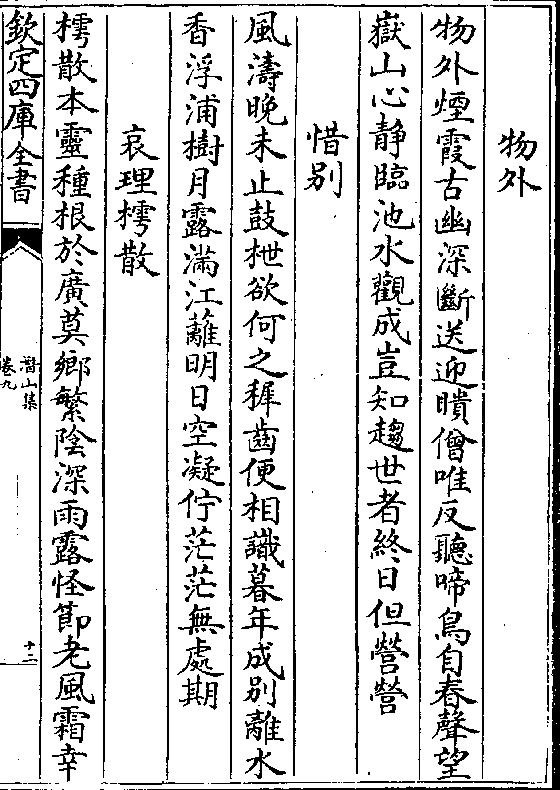 物外
物外煙霞古幽深斷送迎瞶僧唯反聽啼鳥自春聲望
嶽山心静臨池水觀成豈知趨世者終日但營營
惜别
風濤晚未止鼓枻欲何之稺齒便相識暮年成别離水
香浮浦樹月露滿江蘺明日空凝佇茫茫無處期
哀理樗散
樗散本靈種根於廣莫鄉繁陰深雨露怪節老風霜幸
欽定四庫全書
潛山集
卷九
十二